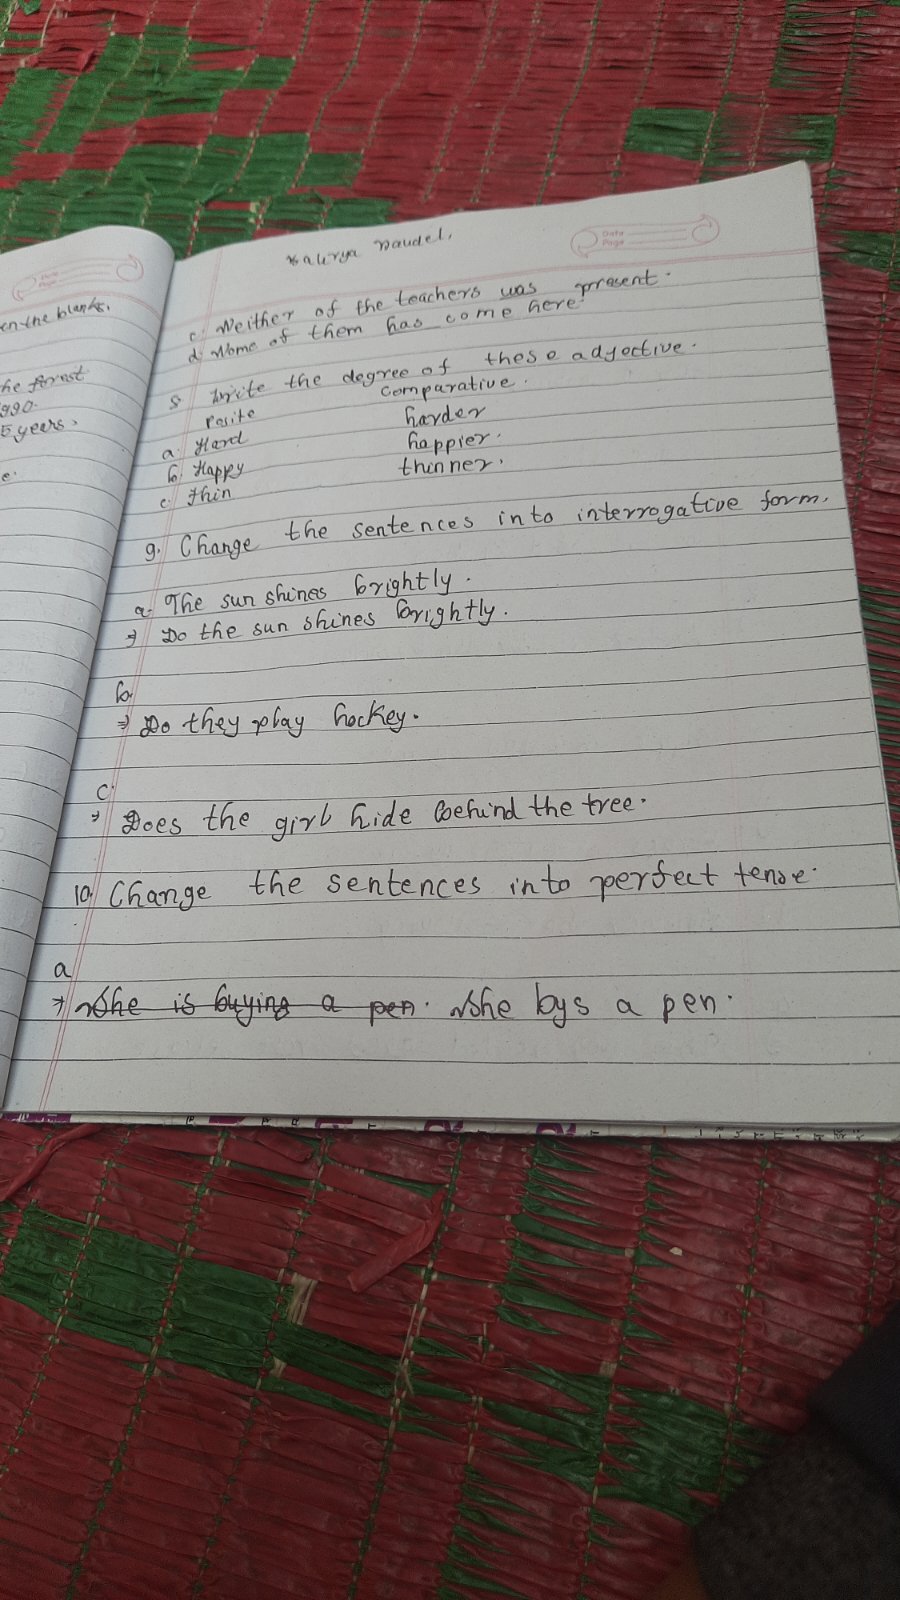 en the blanks.
he forest
990.
5 years.
e.
Daudel.
Date
Page
c. Neither of the teachers was present.
d. None of them has come here.
8 Write the degree of these adjective.
Posite comparative.
a. Hard harder
b. Happy happier.
c. Thin thinner.
9. Change the sentences into interrogative form.
a. The sun shines brightly.
⇒ Do the sun shines brightly.
b.
⇒ Do they play hockey.
c.
⇒ Does the girl hide behind the tree.
10. Change the sentences into perfect tense.
a
⇒ She is buying a pen. She bys a pen.